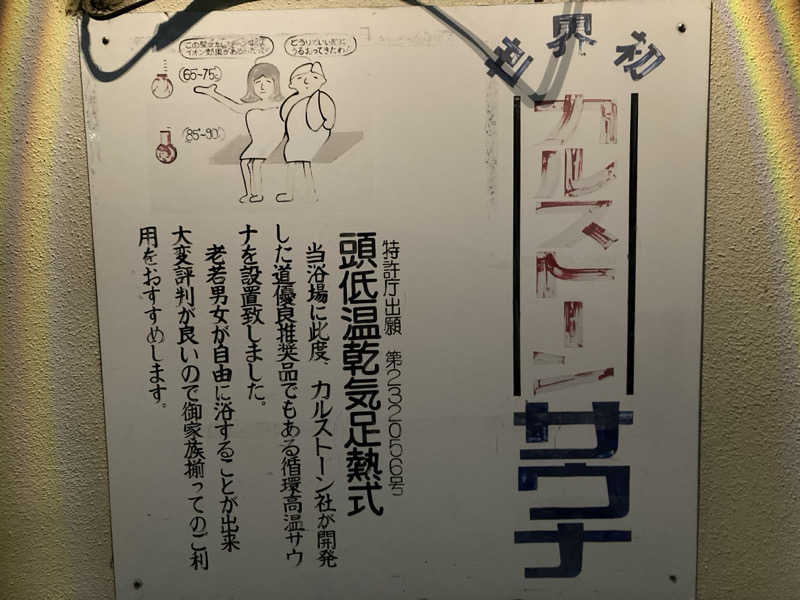 世界初
カルストーン
サウナ
特許庁出願 第232056号
頭低温乾気足熱式
当浴場に此度、カルストーン社が開発
した道優良推奨品でもある循環高温サウ
ナを設置致しました。
老若男女が自由に浴することが出来
大変評判が良いので御家族揃ってのご利
用をおすすめします。
(65~75℃)
(85~90℃)